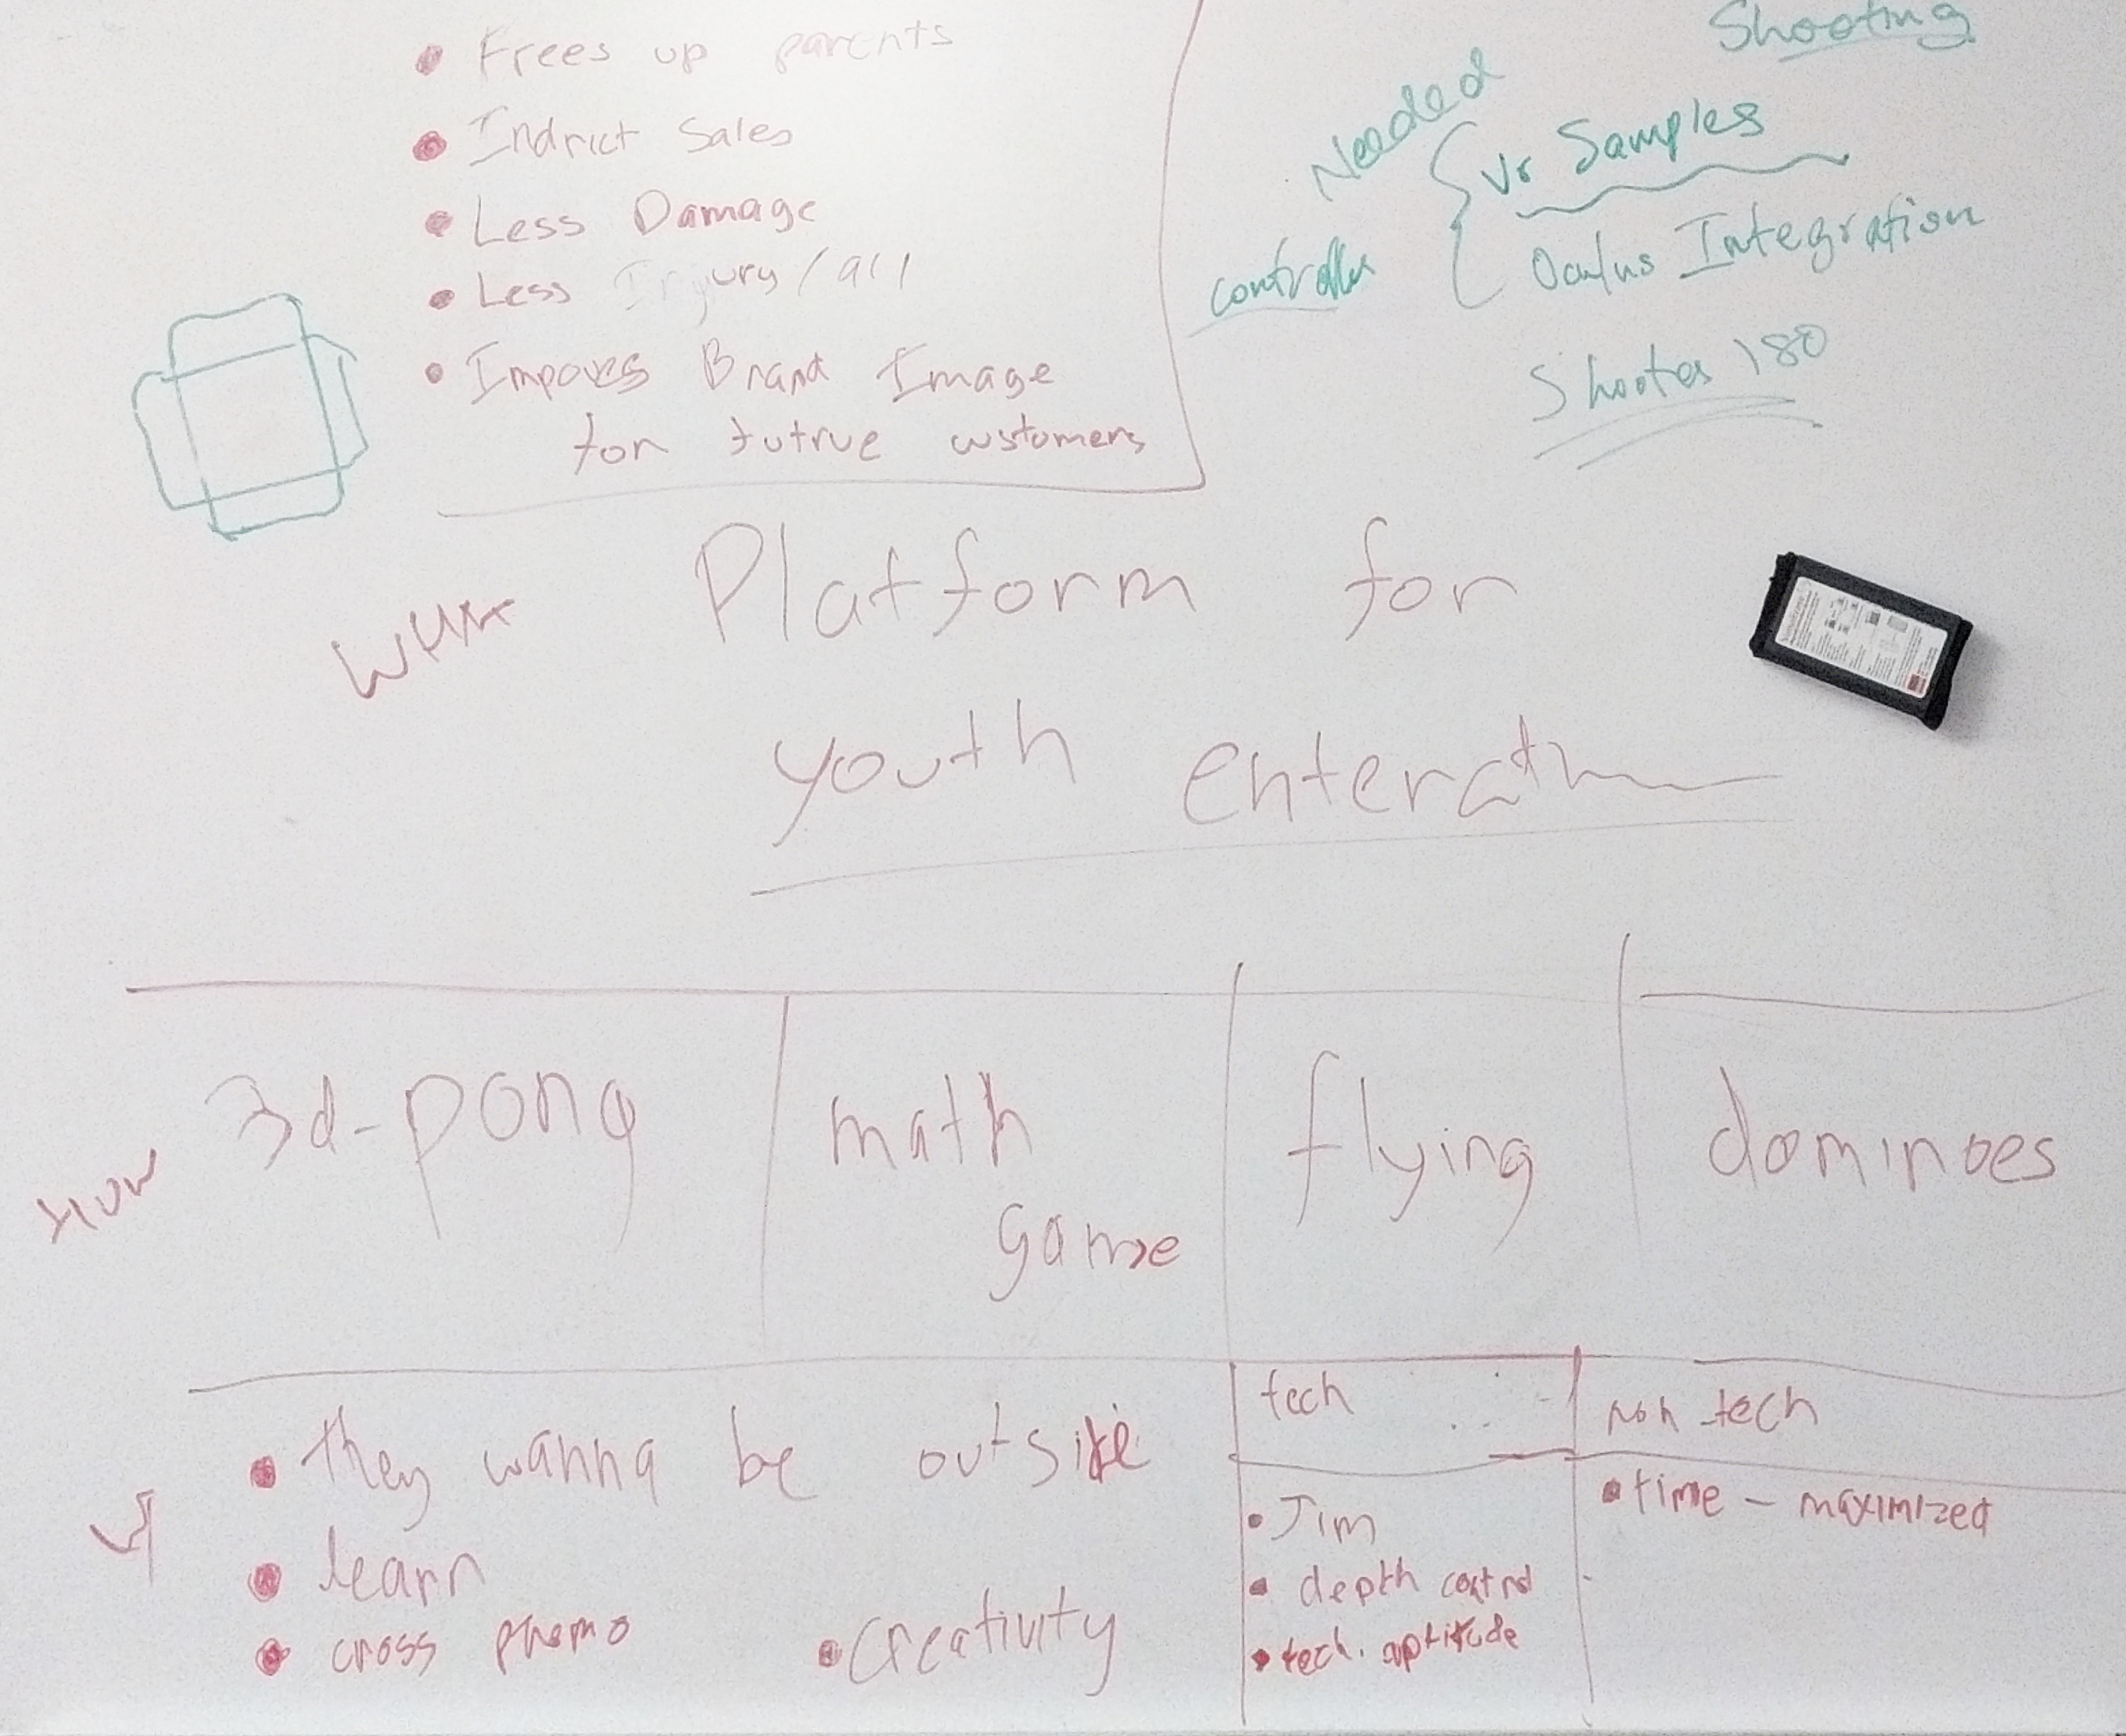 • Frees up parents
• Indrict Sales
• Less Damage
• Less Injury / all
• Impoves Brand Image
for futrue customers
Shooting
Needed
Vr Samples
controller
Oculus Integration
Shooter 180
Platform for
youth
How
3d-pong
math
game
flying
dominoes
• they wanna be outside
• learn
• cross promo
• Creativity
tech
non tech
• Jim
• depth control
• tech. aptitude
• time - maximized